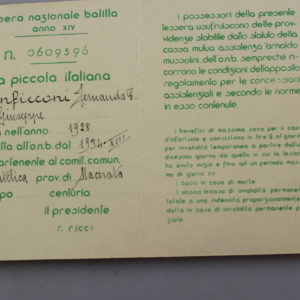 pera nazionale balilla
anno XIV
n. 0609596
a piccola italiana
nficconi Fernanda
Giuseppe
a nell'anno 1928
all'o.n.b. dal 1934-XIII
artenente al comil. comun.
prov. di Macerata
po centuria
il presidente
r. ricci
i possessori della presente
lessera usufruiscono delle prov-
videnze stabilite dallo statuto della
cassa mutua assistenza arnaldo
mussolini, dell'o.n.b. sempreché ri-
corrano le condizioni dell'apposito
regolamento per le concessioni
assistenziali e secondo le norme
in esso contenute.
i benefici di massima sono per i casi
d'infortunio e consistono in lire 2 al giorno
per invalidità temporanea a partire dall'un-
dicesimo giorno da quello in cui la lesione
ha avuto inizio e fino ad un periodo massi-
mo di giorni 70.
l. 5000 in caso di morte.
l. 15000 in caso di invalidità permanente as-
soluta o una indennità proporzionalmente ri-
dotta in caso di invalidità permanente parziale